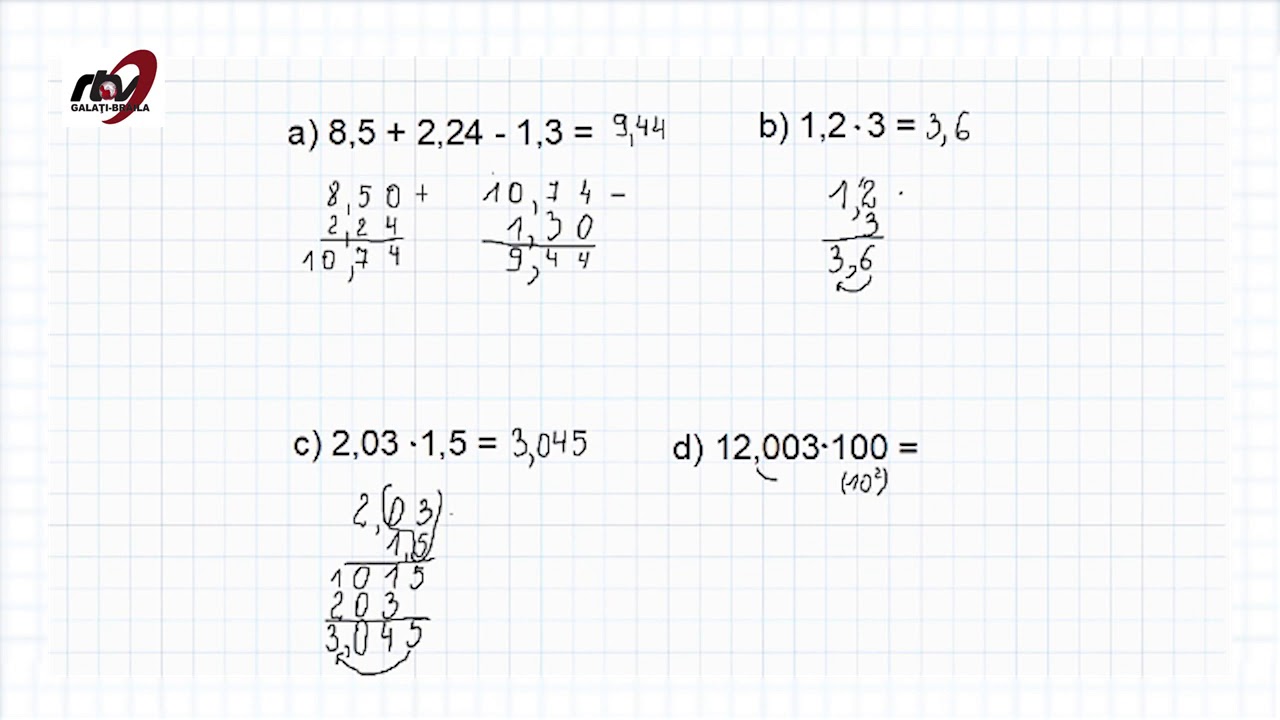 rtv
GALAȚI-BRĂILA
a) 8,5 + 2,24 - 1,3 = 9,44
8,50 +
2,24
10,74
10,74 -
1,30
9,44
b) 1,2·3 = 3,6
1,2 ·
3
3,6
c) 2,03 ·1,5 = 3,045
2,03 ·
1,5
1015
203
3,045
d) 12,003·100 =
(10²)